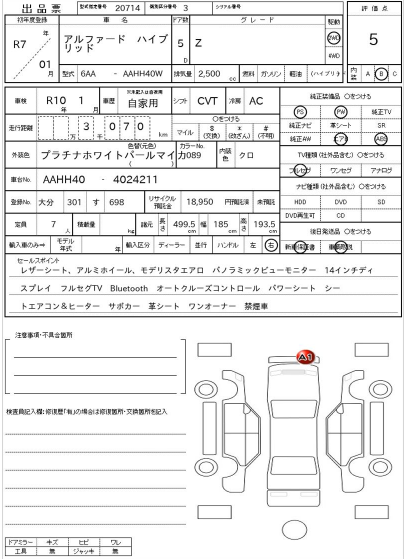 出品票 型式指定番号 20714 類別区分番号 3 シリアル番号
初年度登録 車名 ドア数 グレード 駆動 評価点
R7 年 01 月
アルファード ハイブリッド
5 D
Z
2WD
4WD
5
型式 6AA - AAHH40W 排気量 2,500 cc 燃料 ガソリン 軽油 (ハイブリッド) 内装 A B C
車検 R10 年 1 月 車歴 ※未記入は自家用 自家用 シフト CVT 冷房 AC
純正装備品 〇をつける
走行距離 万 3 千 0 7 0 km
〇をつける
マイル $ (交換) x (改ざん) # (不明)
PS PW 純正TV
純正ナビ 革シート SR
純正AW エアB ABS
外装色 色替(元色) プラチナホワイトパールマイカ カラーNo. 089 内装色 クロ
TV種類(社外品含む) 〇をつける
フルセグ ワンセグ アナログ
車台No. AAHH40 - 4024211
ナビ種類(社外品含む) 〇をつける
HDD DVD SD
DVD再生可 CD
登録No. 大分 301 す 698 リサイクル預託金 18,950 円預託済 未預託
定員 7 人 積載量 kg 諸元 長さ 499.5 cm 幅 185 cm 高さ 193.5 cm
後日発送品 〇をつける
輸入車のみ⇒ モデル年式 年 輸入区分 ディーラー 並行 ハンドル 左 右
新車保証書 取説
セールスポイント
レザーシート、アルミホイール、モデリスタエアロ パノラミックビューモニター 14インチディ
スプレイ フルセグTV Bluetooth オートクルーズコントロール パワーシート シー
トエアコン＆ヒーター サポカー 革シート ワンオーナー 禁煙車
注意事項・不具合箇所
A1
検査員記入欄:修復歴「有」の場合は修復箇所・交換箇所を記入
ドアミラー キズ ヒビ ワレ
工具 無 ジャッキ 無